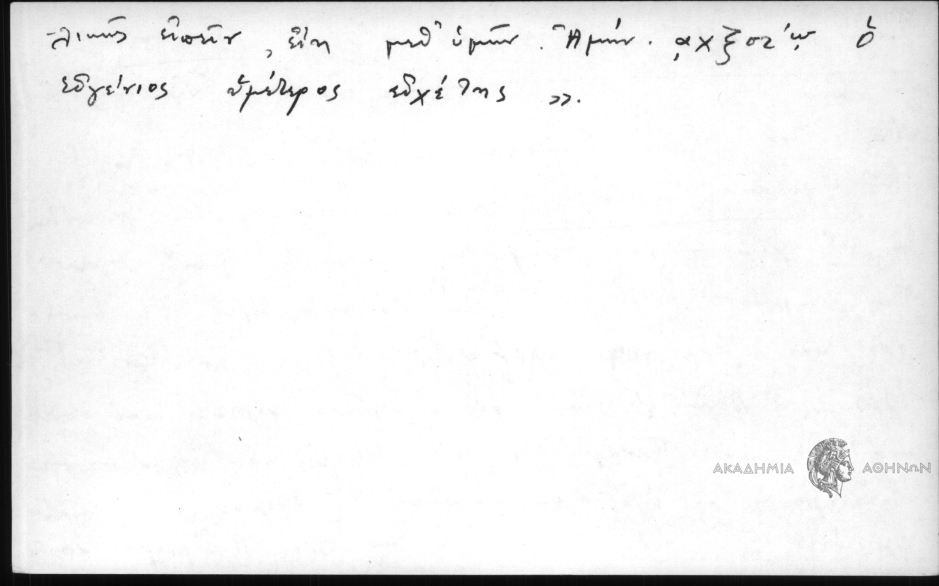 -λικῶς εἰπεῖν, εἴη μεθ' ὑμῶν. Ἀμήν. ͵αχξστ´ῳ ὁ
εὐγένιος ὑμέτερος εὐχέτης ».
ΑΚΑΔΗΜΙΑ ΑΘΗΝΩΝ